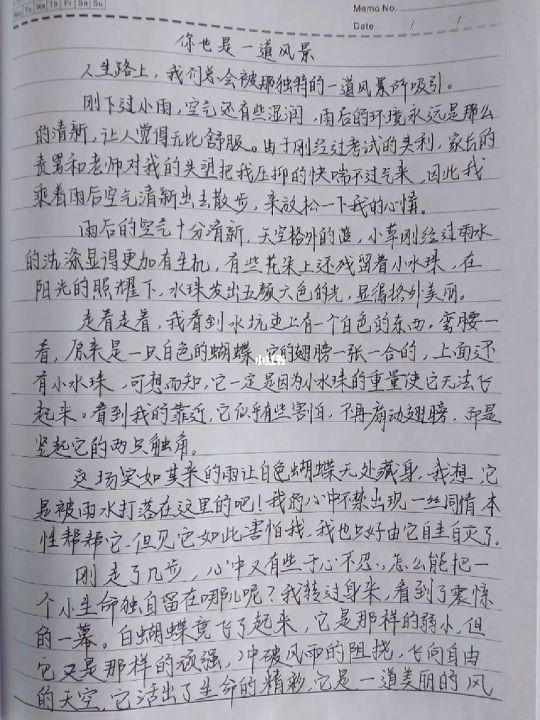 Mo Tu We Th Fr Sa Su
Memo No.
Date / /
你也是一道风景
人生路上，我们总会被那独特的一道风景所吸引。
刚下过小雨，空气还有些湿润，雨后的环境永远是那么
的清新，让人觉得无比舒服。由于刚经过考试的失利，家长的
责骂和老师对我的失望把我压抑的快喘不过气来，因此我
乘着雨后空气清新出去散步，来放松一下我的心情。
雨后的空气十分清新，天空格外的蓝，小草刚经过雨水
的洗涤显得更加有生机，有些花朵上还残留着小水珠，在
阳光的照耀下，水珠发出五颜六色的光，显得格外美丽。
走着走着，我看到水坑边上有一个白色的东西，弯腰一
看，原来是一只白色的蝴蝶，它的翅膀一张一合的，上面还
有小水珠，可想而知，它一定是因为小水珠的重量使它无法飞
起来。看到我的靠近，它似乎有些害怕，不再扇动翅膀，而是
竖起它的两只触角。
这场突如其来的雨让白色蝴蝶无处藏身，我想，它
是被雨水打落在这里的吧！我的心中不禁出现一丝同情，本
性帮帮它，但见它如此害怕我，我也只好由它自生自灭了。
刚走了几步，心中又有些于心不忍，怎么能把一
个小生命独自留在哪儿呢？我转过身来，看到了震惊
的一幕。白蝴蝶竟飞了起来，它是那样的弱小，但
它又是那样的顽强，冲破风雨的阻挠，飞向自由
的天空，它活出了生命的精彩，它是一道美丽的风
小红书